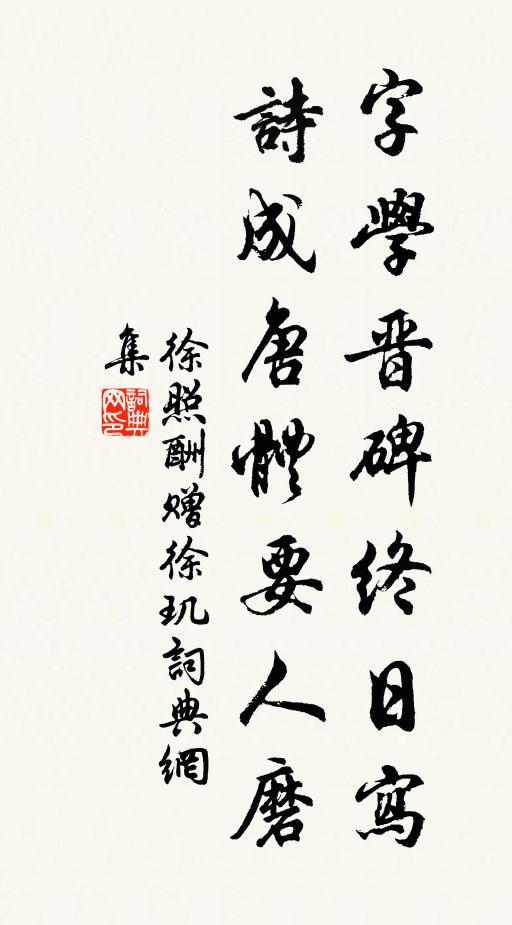 字學晋碑終日寫
詩成唐體要人磨
徐照酬贈徐玑詞典網
集
詞典
网印